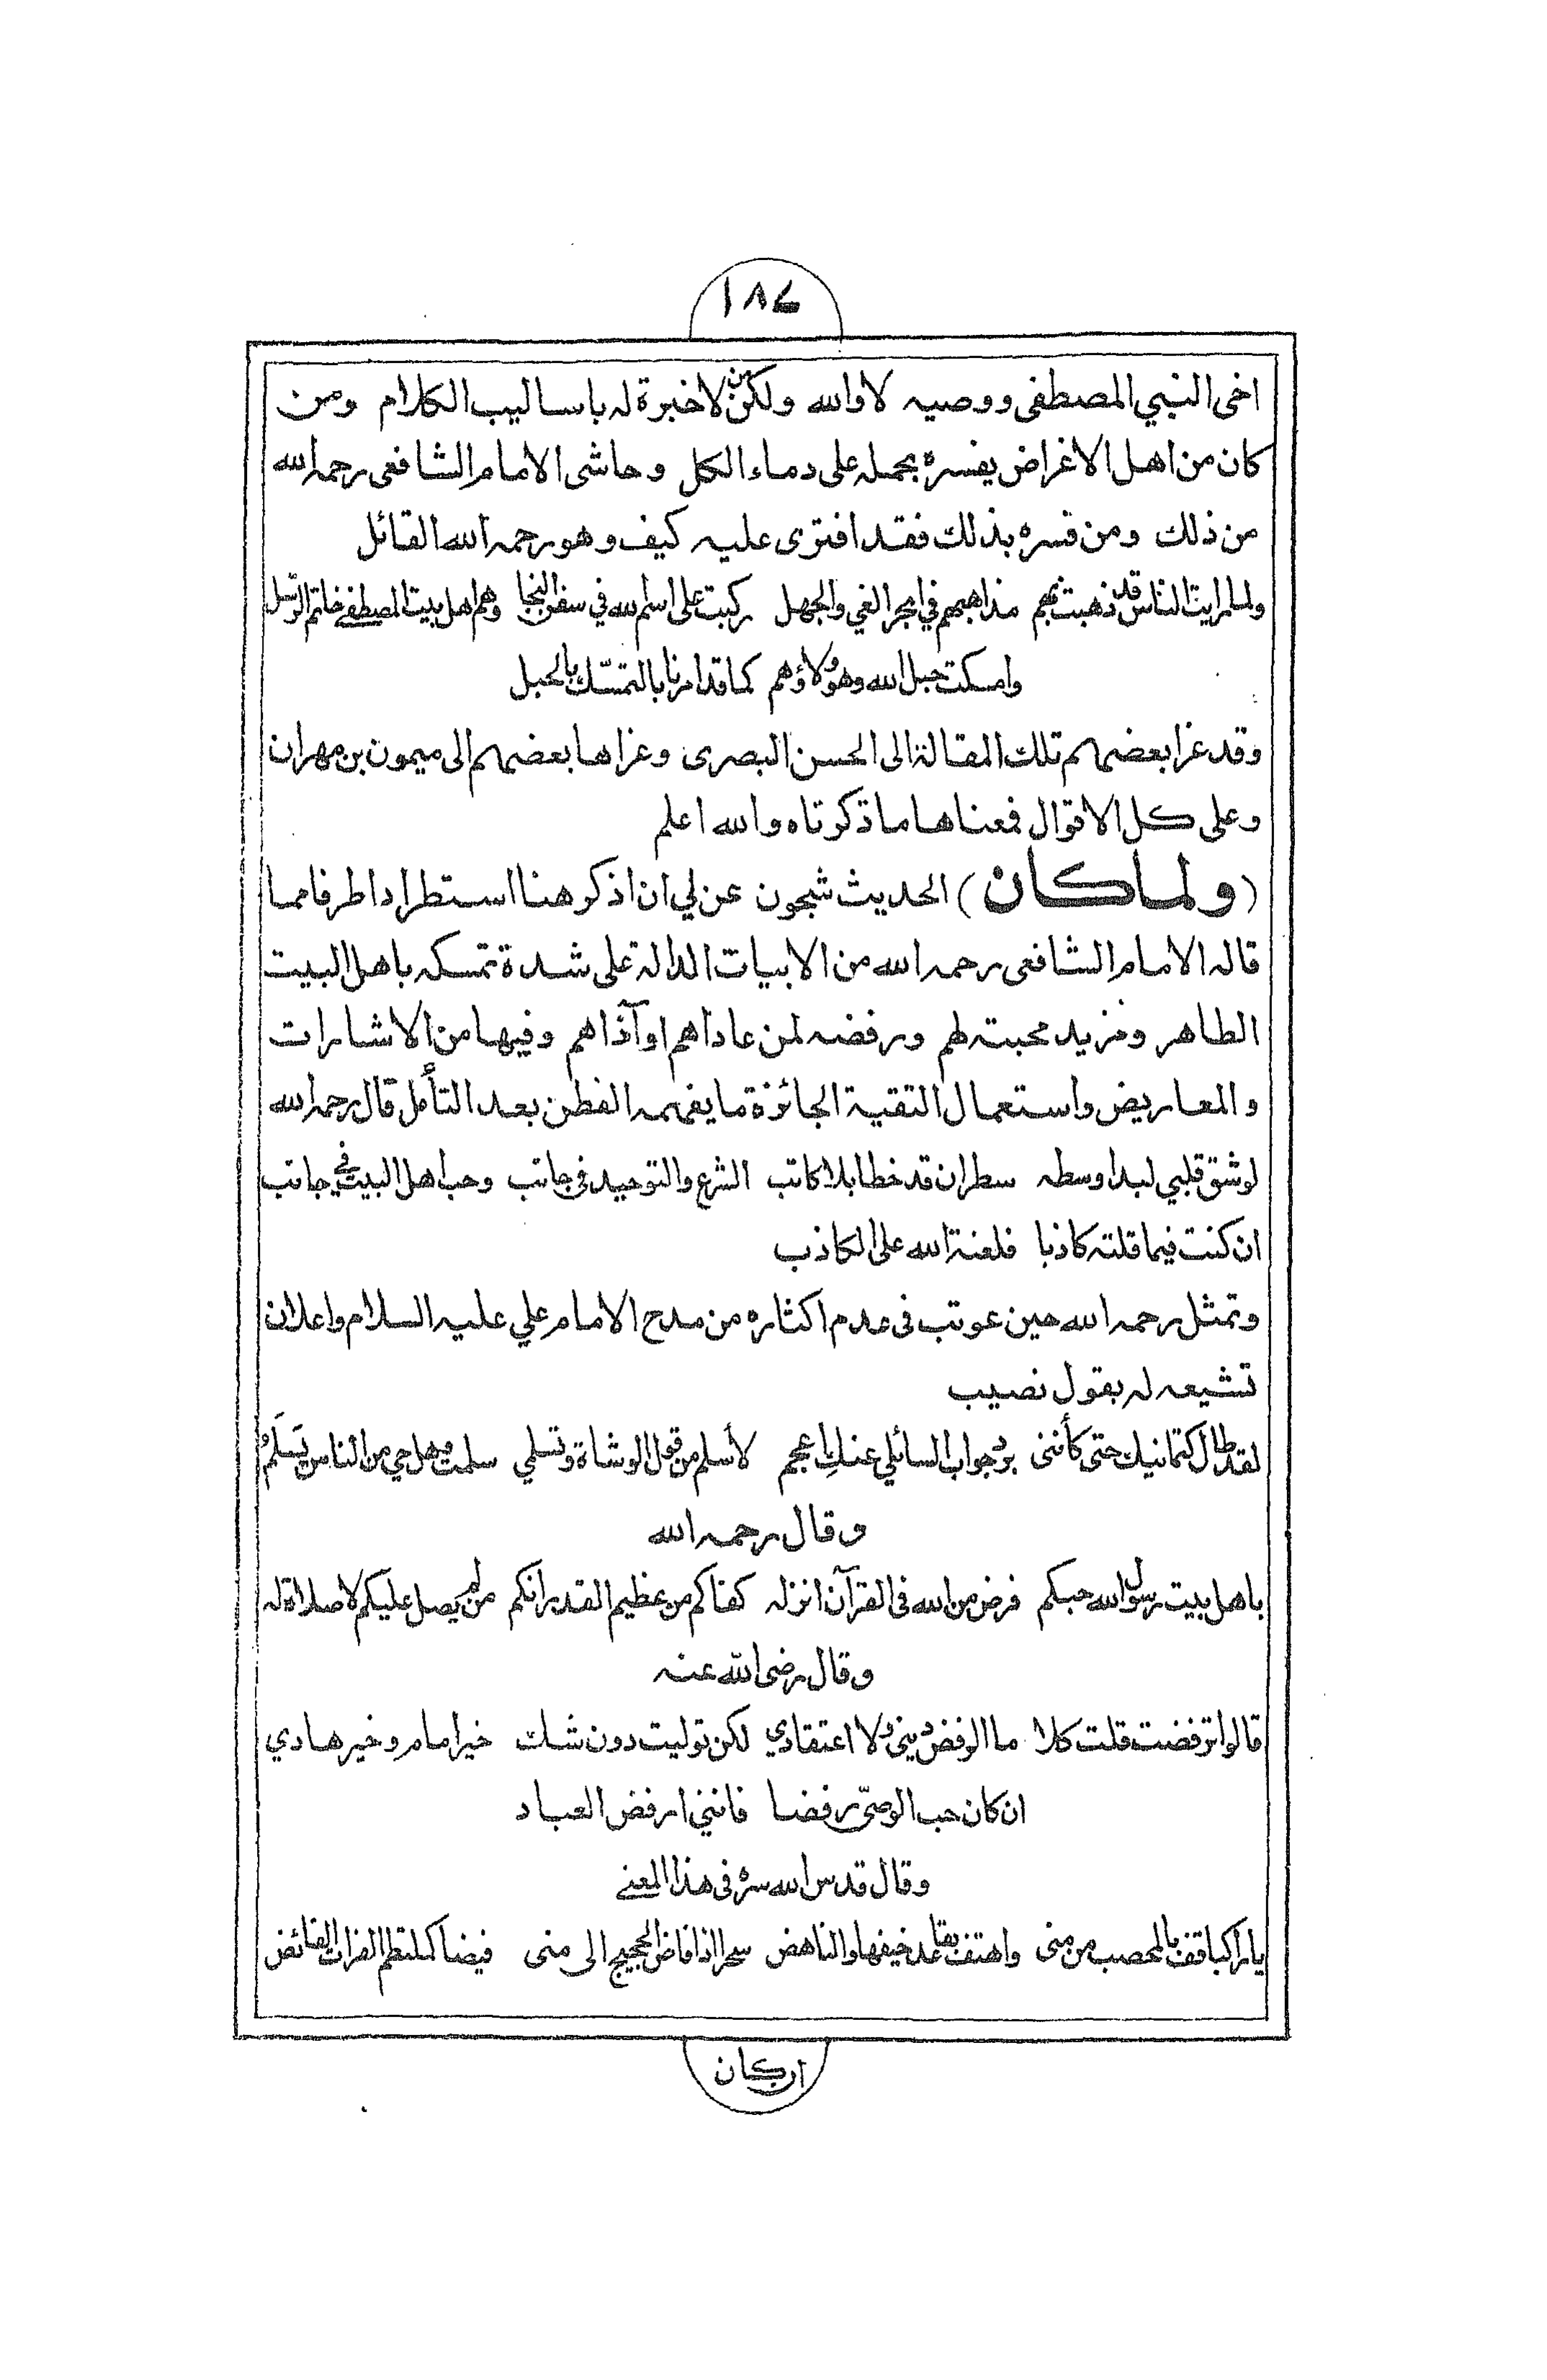 ١٨٤
اخى النبي المصطفى ووصيه لا والله ولكن من لا خبرة له باساليب الكلام ومن
كان من اهل الاغراض يفسره بحمله على دماء الكل وحاشى الامام الشافعى رحمه الله
من ذلك ومن فسره بذلك فقد افترى عليه كيف وهو رحمه الله القائل
ولما رايت الناس قد ذهبت بهم مذاهبهم في ابحر الغي والجهل ركبت على اسم الله في سفن النجا وهم اهل بيت المصطفے خاتم الرسل
وامسكت حبل الله وهو ولاؤهم كما قد امرنا بالتمسّك بالحبل
وقد عزا بعضهم تلك المقالة الى الحسن البصرى وعزاها بعضهم الى ميمون بن مهران
وعلى كل الاقوال فمعناها ما ذكرناه والله اعلم
(ولما كان) الحديث شجون عن لي ان اذكر هنا استطرادا طرفا مما
قاله الامام الشافعى رحمه الله من الابيات الدالة على شدة تمسكه باهل البيت
الطاهر ومزيد محبته لهم ورفضه لمن عاداهم او آذاهم وفيها من الاشارات
والمعاريض واستعمال التقية الجائزة ما يفهمه الفطن بعد التأمل قال رحمه الله
لو شق قلبي لبدا وسطه سطران قد خطا بلا كاتب الشرع والتوحيد في جانب وحب اهل البيت في جانب
ان كنت فيما قلته كاذبا فلعنة الله على الكاذب
وتمثل رحمه الله حين عوتب فى عدم اكثاره من مدح الامام علي عليه السلام واعلان
تشيعه له بقول نصيب
لقد طال كتمانيك حتى كأننى برد جواب السائلي عنكِ اعجم لأسلم من قول الوشاة وتسلمي سلمت وهل حي من الناس يَسْلَمُ
وقال رحمه الله
يا اهل بيت رسول الله حبكم فرض من الله فى القرآن انزله كفاكم من عظيم القدر انكم من لم يصل عليكم لا صلاة له
وقال رضى الله عنه
قالوا ترفضت قلت كلا ما الرفض ديني ولا اعتقادي لكن توليت دون شك خير امام وخير هادي
ان كان حب الوصيّ رفضا فانني ارفض العباد
وقال قدس الله سره فى هذا المعنے
يا راكبا قف بالمحصب من منى واهتف بقاعد خيفها والناهض سحرا اذا فاض الحجيج الى منى فيضا كملتطم الفرات الفائض
ان كان